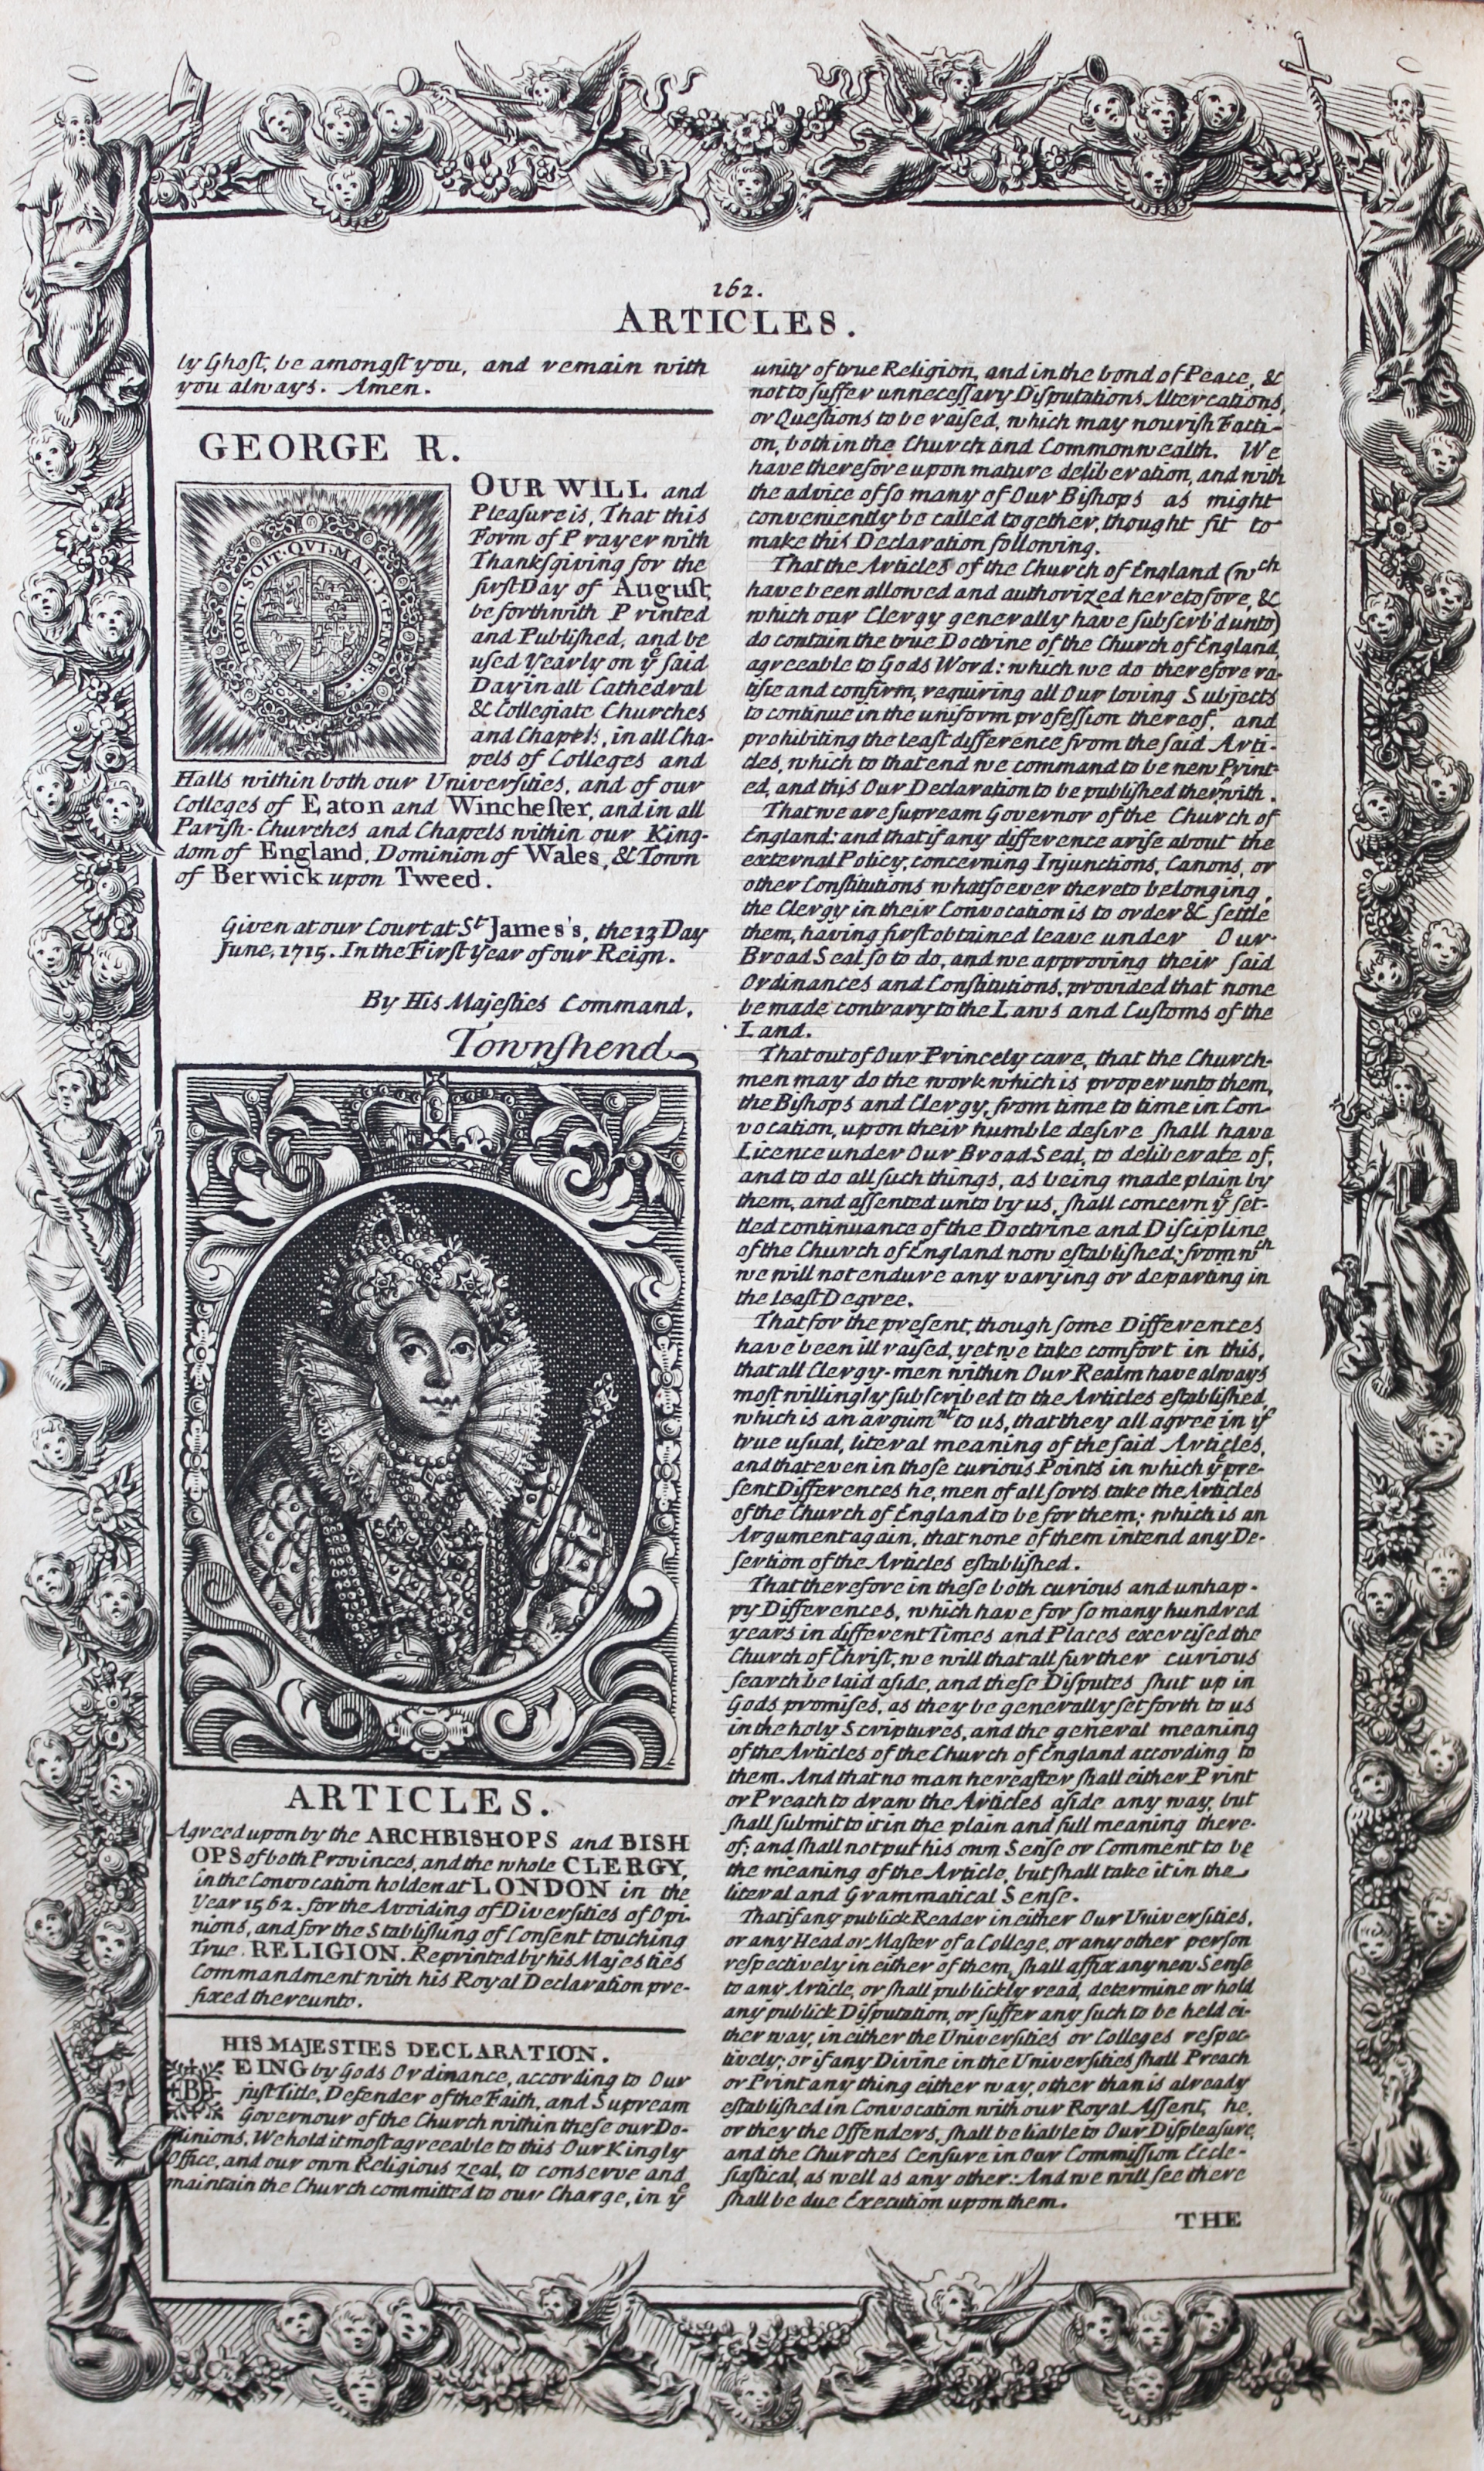 162.
ARTICLES.
ly Ghoſt, be amongſt you, and remain with
you always. Amen.
GEORGE R.
HONI · SOIT · QVI · MAL · Y · PENCE ·
OUR WILL and
Pleaſure is, That this
Form of Prayer with
Thankſgiving for the
firſt Day of Auguſt,
be forthwith Printed
and Publiſhed, and be
uſed Yearly on yͤ ſaid
Day in all Cathedral
& Collegiate Churches
and Chapels, in all Cha-
pels of Colleges and
Halls within both our Univerſities, and of our
Colleges of Eaton and Wincheſter, and in all
Pariſh-Churches and Chapels within our King-
dom of England, Dominion of Wales, & Town
of Berwick upon Tweed.
Given at our Court at Sᵗ James's, the 13 Day
June, 1715. In the Firſt Year of our Reign.
By His Majeſties Command,
Townſhend
ARTICLES.
Agreed upon by the ARCHBISHOPS and BISH
OPS of both Provinces, and the whole CLERGY,
in the Convocation holden at LONDON in the
Year 1562. for the Avoiding of Diverſities of Opi-
nions, and for the Stabliſhing of Conſent touching
True RELIGION. Reprinted by his Majeſties
Commandment with his Royal Declaration pre-
fixed thereunto.
HIS MAJESTIES DECLARATION.
BEING by Gods Ordinance, according to Our
juſt Title, Defender of the Faith, and Supream
Governour of the Church within theſe our Do-
minions, We hold it moſt agreeable to this Our Kingly
Office, and our own Religious zeal, to conſerve and
maintain the Church committed to our Charge, in yͤ
unity of true Religion, and in the bond of Peace, &
not to ſuffer unneceſſary Diſputations Altercations,
or Queſtions to be raiſed, which may nouriſh Facti-
on, both in the Church and Commonwealth. We
have therefore upon mature deliberation, and with
the advice of ſo many of Our Biſhops as might
conveniently be called together, thought fit to
make this Declaration following.
That the Articles of the Church of England (wᶜʰ
have been allowed and authorized heretofore, &
which our Clergy generally have ſubscrib'd unto)
do contain the true Doctrine of the Church of England,
agreeable to Gods Word: which we do therefore ra-
tifie and confirm, requiring all Our loving Subjects
to continue in the uniform profeſſion thereof, and
prohibiting the leaſt difference from the ſaid Arti-
cles, which to that end we command to be new Print-
ed, and this Our Declaration to be publiſhed therwith.
That we are ſupream Governor of the Church of
England: and that if any difference ariſe about the
external Policy, concerning Injunctions, Canons, or
other Conſtitutions whatſoever thereto belonging,
the Clergy in their Convocation is to order & ſettle
them, having firſt obtained leave under Our
Broad Seal ſo to do, and we approving their ſaid
Ordinances and Conſtitutions, provided that none
be made contrary to the Laws and Cuſtoms of the
Land.
That out of Our Princely care, that the Church-
men may do the work which is proper unto them,
the Biſhops and Clergy, from time to time in Con-
vocation, upon their humble deſire ſhall have
Licence under Our Broad Seal, to deliberate of,
and to do all ſuch things, as being made plain by
them, and aſſented unto by us, ſhall concern yͤ ſet-
tled continuance of the Doctrine and Diſcipline
of the Church of England now eſtabliſhed; from wᶜʰ
we will not endure any varying or departing in
the leaſt Degree.
That for the preſent, though ſome Differences
have been ill raiſed, yet we take comfort in this,
that all Clergy-men within Our Realm have always
moſt willingly ſubſcribed to the Articles eſtabliſhed,
which is an argumⁿᵗ to us, that they all agree in yͤ
true uſual, literal meaning of the ſaid Articles,
and that even in thoſe curious Points in which yͤ pre-
ſent Differences lie, men of all ſorts take the Articles
of the Church of England to be for them; which is an
Argument again, that none of them intend any De-
ſertion of the Articles eſtabliſhed.
That therefore in theſe both curious and unhap-
py Differences, which have for ſo many hundred
years in different Times and Places exerciſed the
Church of Chriſt, we will that all further curious
ſearch be laid aſide, and theſe Diſputes ſhut up in
Gods promiſes, as they be generally ſet forth to us
in the holy Scriptures, and the general meaning
of the Articles of the Church of England according to
them. And that no man hereafter ſhall either Print
or Preach to draw the Articles aſide any way, but
ſhall ſubmit to it in the plain and full meaning there-
of; and ſhall not put his own Senſe or Comment to be
the meaning of the Article, but ſhall take it in the
literal and Grammatical Senſe.
That if any publick Reader in either Our Univerſities,
or any Head or Maſter of a College, or any other perſon
reſpectively in either of them, ſhall affix any new Senſe
to any Article, or ſhall publickly read, determine or hold
any publick Diſputation, or ſuffer any ſuch to be held ei-
ther way, in either the Univerſities or Colleges reſpec-
tively; or if any Divine in the Univerſities ſhall Preach
or Print any thing either way, other than is already
eſtabliſhed in Convocation with our Royal Aſſent, he,
or they the Offenders, ſhall be liable to Our Diſpleaſure,
and the Churches Cenſure in Our Commiſſion Eccle-
ſiaſtical, as well as any other: And we will ſee there
ſhall be due Execution upon them.
THE